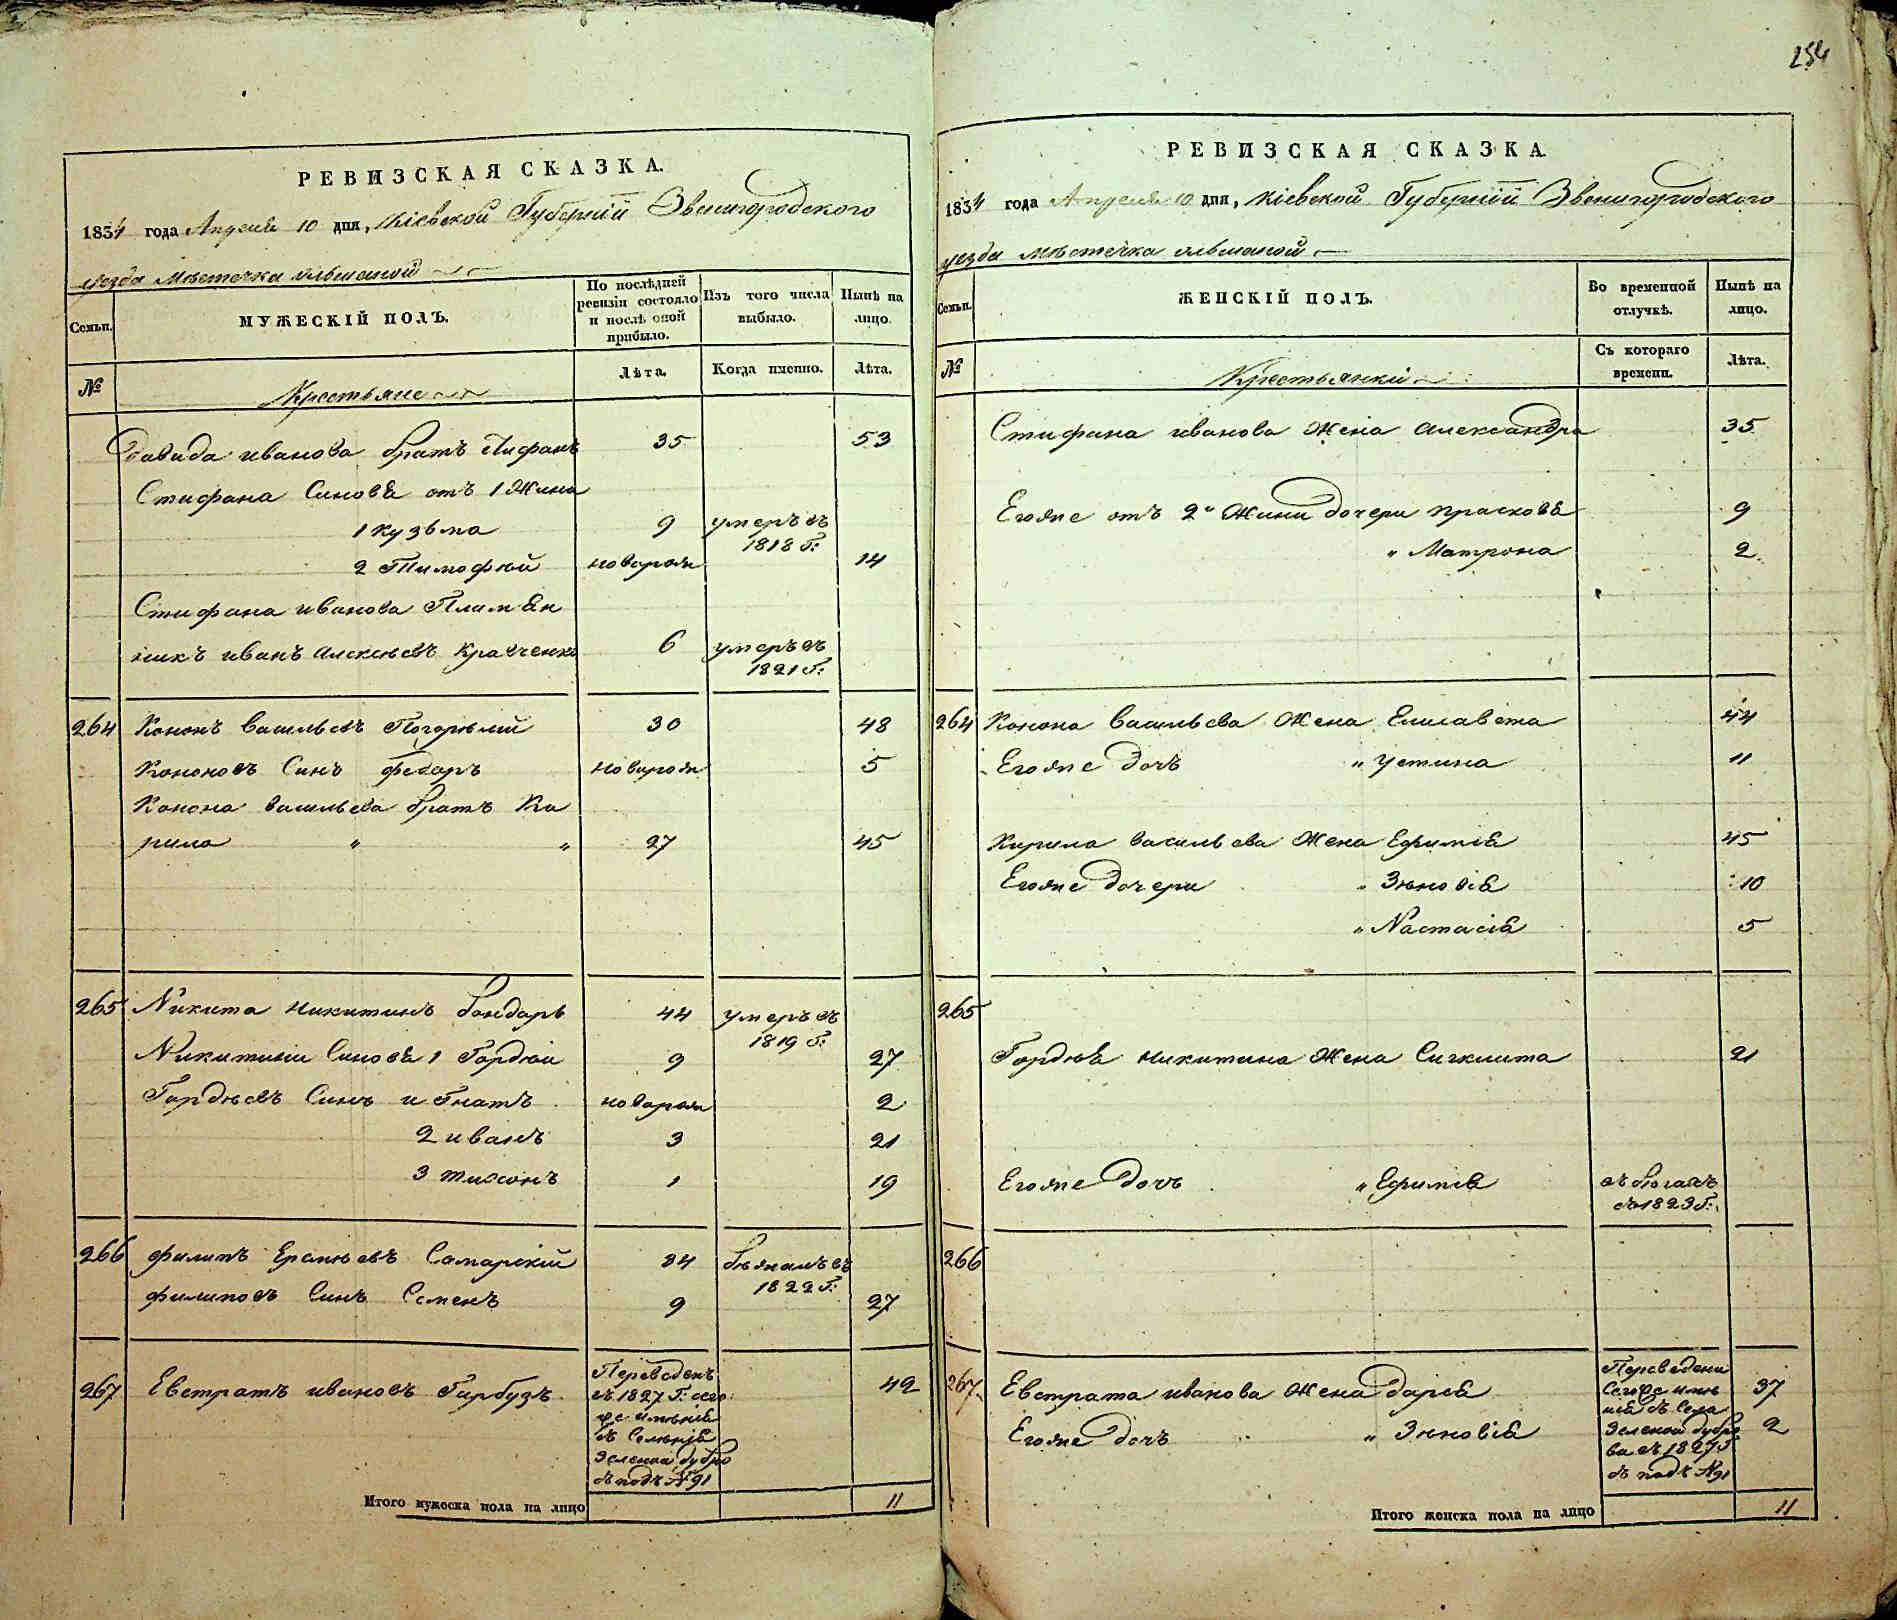 254
РЕВИЗСКАЯ СКАЗКА.
1834 года Апреля 10 дня, Кіевской Губерніи Звенигородского
уезда Мѣстечка ольшаной
Семьи.
МУЖЕСКІЙ ПОЛЪ.
По послѣдней ревизіи состояло и послѣ оной прибыло.
Изъ того числа выбыло.
Нынѣ на лицо.
№
Крестьяне
Лѣта.
Когда именно.
Лѣта.
Давида иванова братъ Стифанъ 35 53
Стифана Синовя отъ 1 Жини
1 кузьма 9 умеръ въ 1818 Г:
2 Тимофѣй новорож 14
Стифана иванова Племян
никъ иванъ алексѣевъ кравченко 6 умеръ въ 1821 Г:
264 Кононъ васильевъ Погорѣлий 30 48
Кононовъ Синъ федоръ новорож 5
Конона васильева братъ Ки
рило " " 27 45
265 Никита никитинъ бондарь 44 умеръ въ 1819 Г:
Никитини Синовя 1 Гордѣй 9 27
Гордѣевъ Синъ игнатъ новорож 2
2 иванъ 3 21
3 тихонъ 1 19
266 филипъ Ерапѣевъ Самарскій 34 бѣжалъ въ 1822 Г:
филиповъ Синъ Семенъ 9 27
267 Евстратъ ивановъ Гарбузъ 42
Переведенъ
въ 1827 Г: сего
же имѣнія
въ Селенія
Зеленой дубро
въ подъ №91
Итого мужеска пола на лицо 11
РЕВИЗСКАЯ СКАЗКА.
1834 года Апреля 10 дня, Кіевской Губерніи Звенигородского
уезда мѣстечка ольшаной
Семьи.
ЖЕНСКІЙ ПОЛЪ.
Во временной отлучкѣ.
Нынѣ на лицо.
№
Крестьянки
Съ котораго времени.
Лѣта.
Стифана иванова жена александра 35
Егоже отъ 2й Жини дочери прасковя 9
" Матрона 2
264 Конона васильева Жена Елисавета 44
Егоже дочъ " устина 11
Кирила васильева Жена Ефимія 45
Егоже дочери " Зѣновія 10
" Настасія 5
265
Гордѣя никитина Жена Сигклита 21
Егоже дочъ " Ефимія въ бѣгахъ съ 1823 Г:
266
267 Евстрата иванова Жена дарія 37
Егоже дочъ " Зѣновія 2
Переведени
Сегоже имѣ
нія въ Села
Зеленой дубро
ва въ 1827 Г
въ подъ №91
Итого женска пола на лицо 11